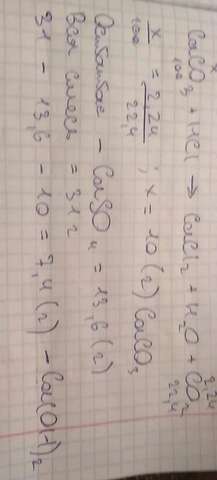 x 2,24
CaCO3 + HCl → CaCl2 + H2O + CO2
100 22,4
x/100 = 2,24/22,4 ; x = 10 (г) CaCO3
Остаток – CaSO4 = 13,6 (г)
Вся смесь = 31 г
31 – 13,6 – 10 = 7,4 (г) – Ca(OH)2